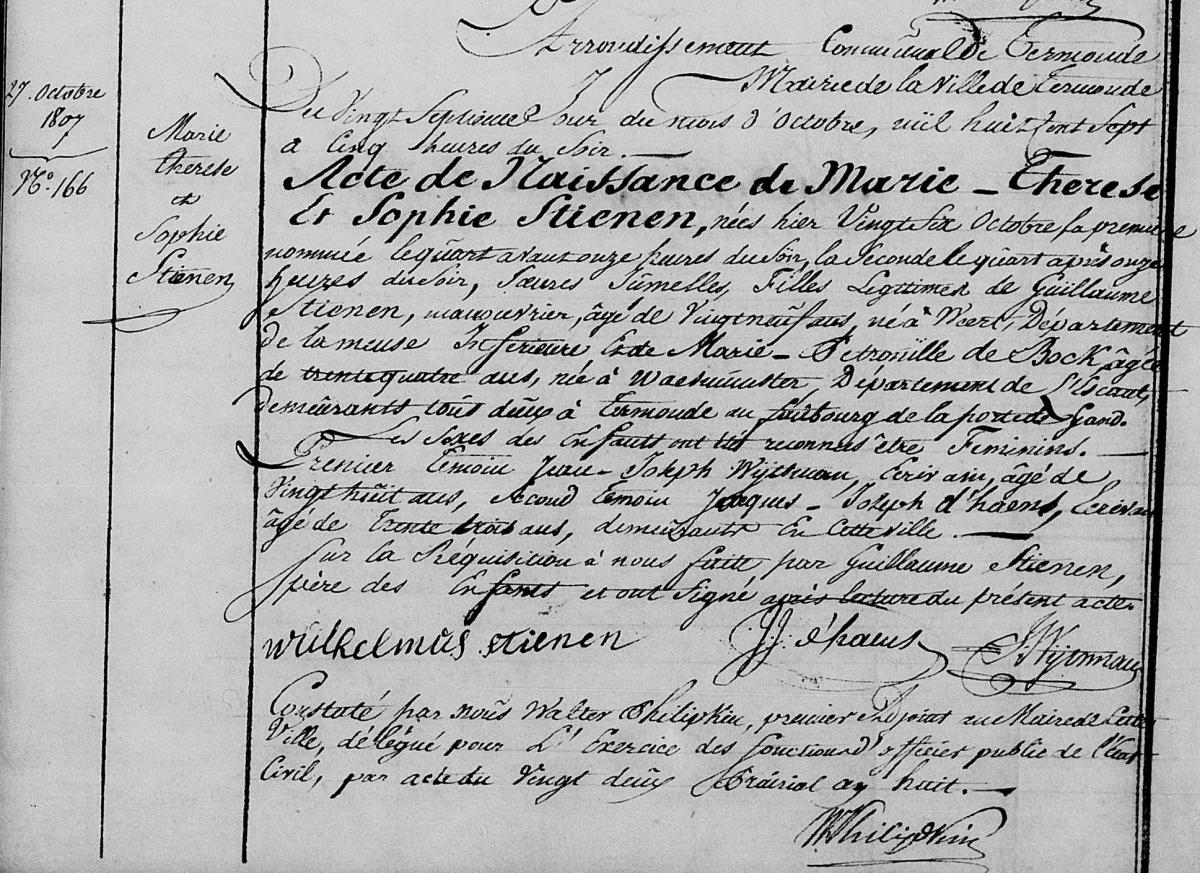 Arrondissement Communal de Termonde
Mairie de la Ville de Termonde
27. Octobre
1807
N.o 166
Marie
therese
et
Sophie
Stienen
Du Vingt Septieme Jour du mois d'Octobre, mil huit Cent Sept
à Cinq heures du Soir.
Acte de Naissance de Marie - Therese
Et Sophie Stienen, nées hier Vingt Six Octobre la premiere
nommée le quart avant onze heures du Soir, la Seconde le quart après onze
heures du Soir, Soeures Jumelles, Filles Legitimes de Guillaume
Stienen, manouvrier, âgé de Vingt neuf ans, né à Weert, Département
de la meuse Inferieure Et de Marie - Petronille de Bock âgée
de trente quatre ans, née à Waesmunster, Département de l'Escaut,
demeurants tous deux à Termonde au fauxbourg de la porte de Gand.
Les Sexes des Enfants ont été reconnus être Feminins.
Premier temoin Jean - Joseph Wÿtsman, Ecrivain, âgé de
Vingt huit ans, Second temoin Jacques - Joseph d'haens, Ecrivain
âgé de trente trois ans, demeurants En Cette ville.
Sur la Réquisition à nous faite par Guillaume Stienen,
père des Enfants et ont Signé après lecture du présent acte.
Wilhelmus Stienen JJ. d'haens J Wÿtsman
Constaté par nous Walter Philipkin, premier Adjoint au Maire de Cette
Ville, délégué pour L'Exercice des fonctions d'officier public de l'Etat
Civil, par acte du Vingt deux Prairial an huit.
W Philipkin